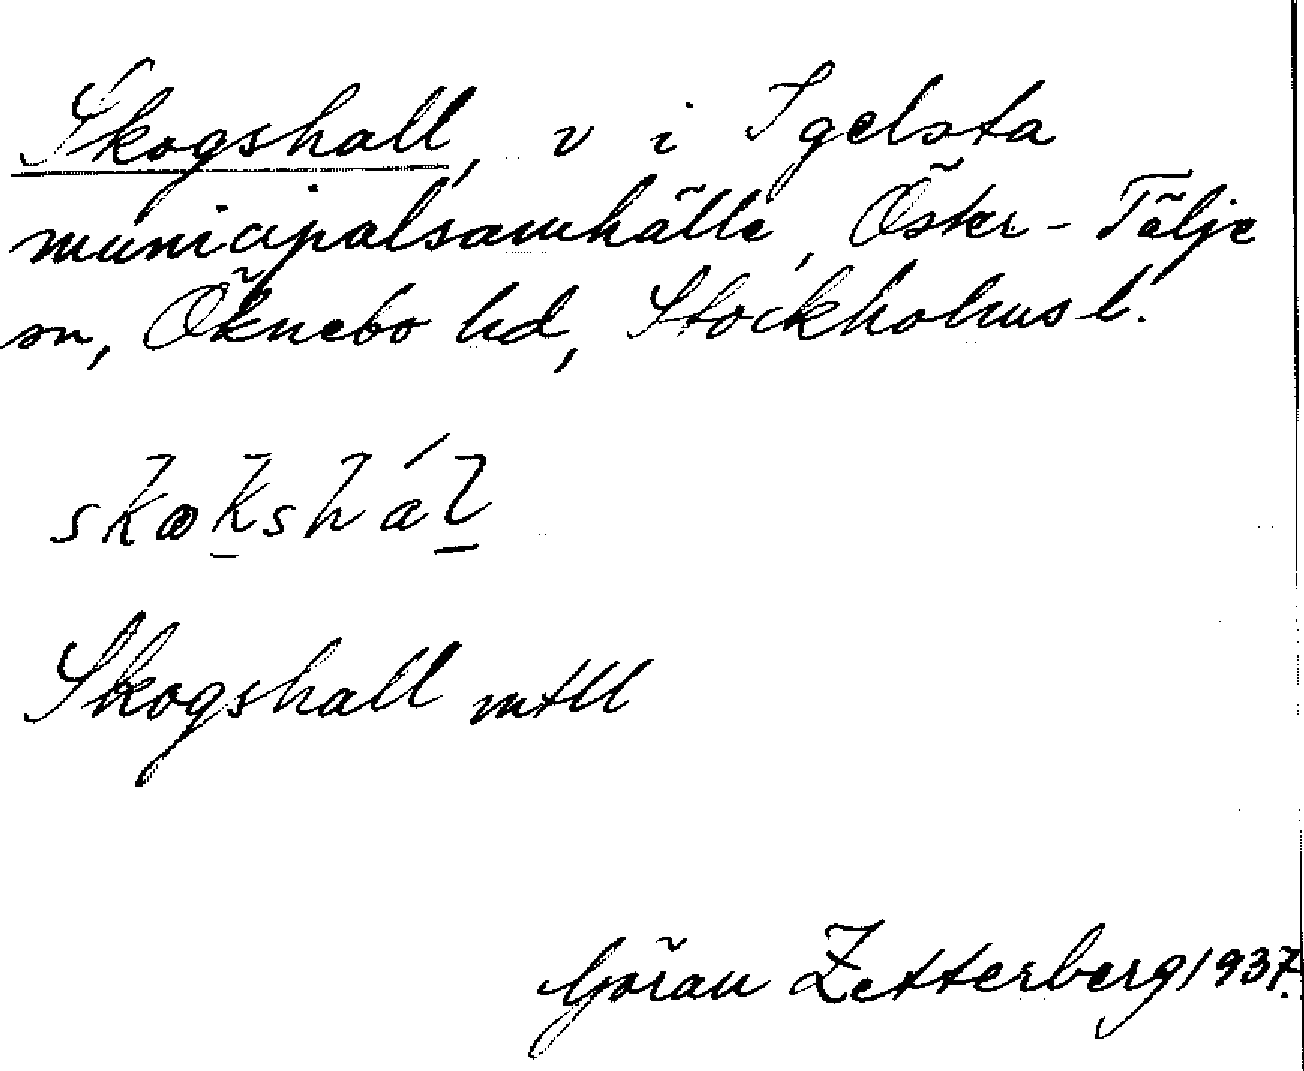 Skogshall, v i Igelsta
municipalsamhälle, Öster-Tälje
sn, Öknebo hd, Stockholms l.
skωkshál
Skogshall mtll
Göran Zetterberg 1937.